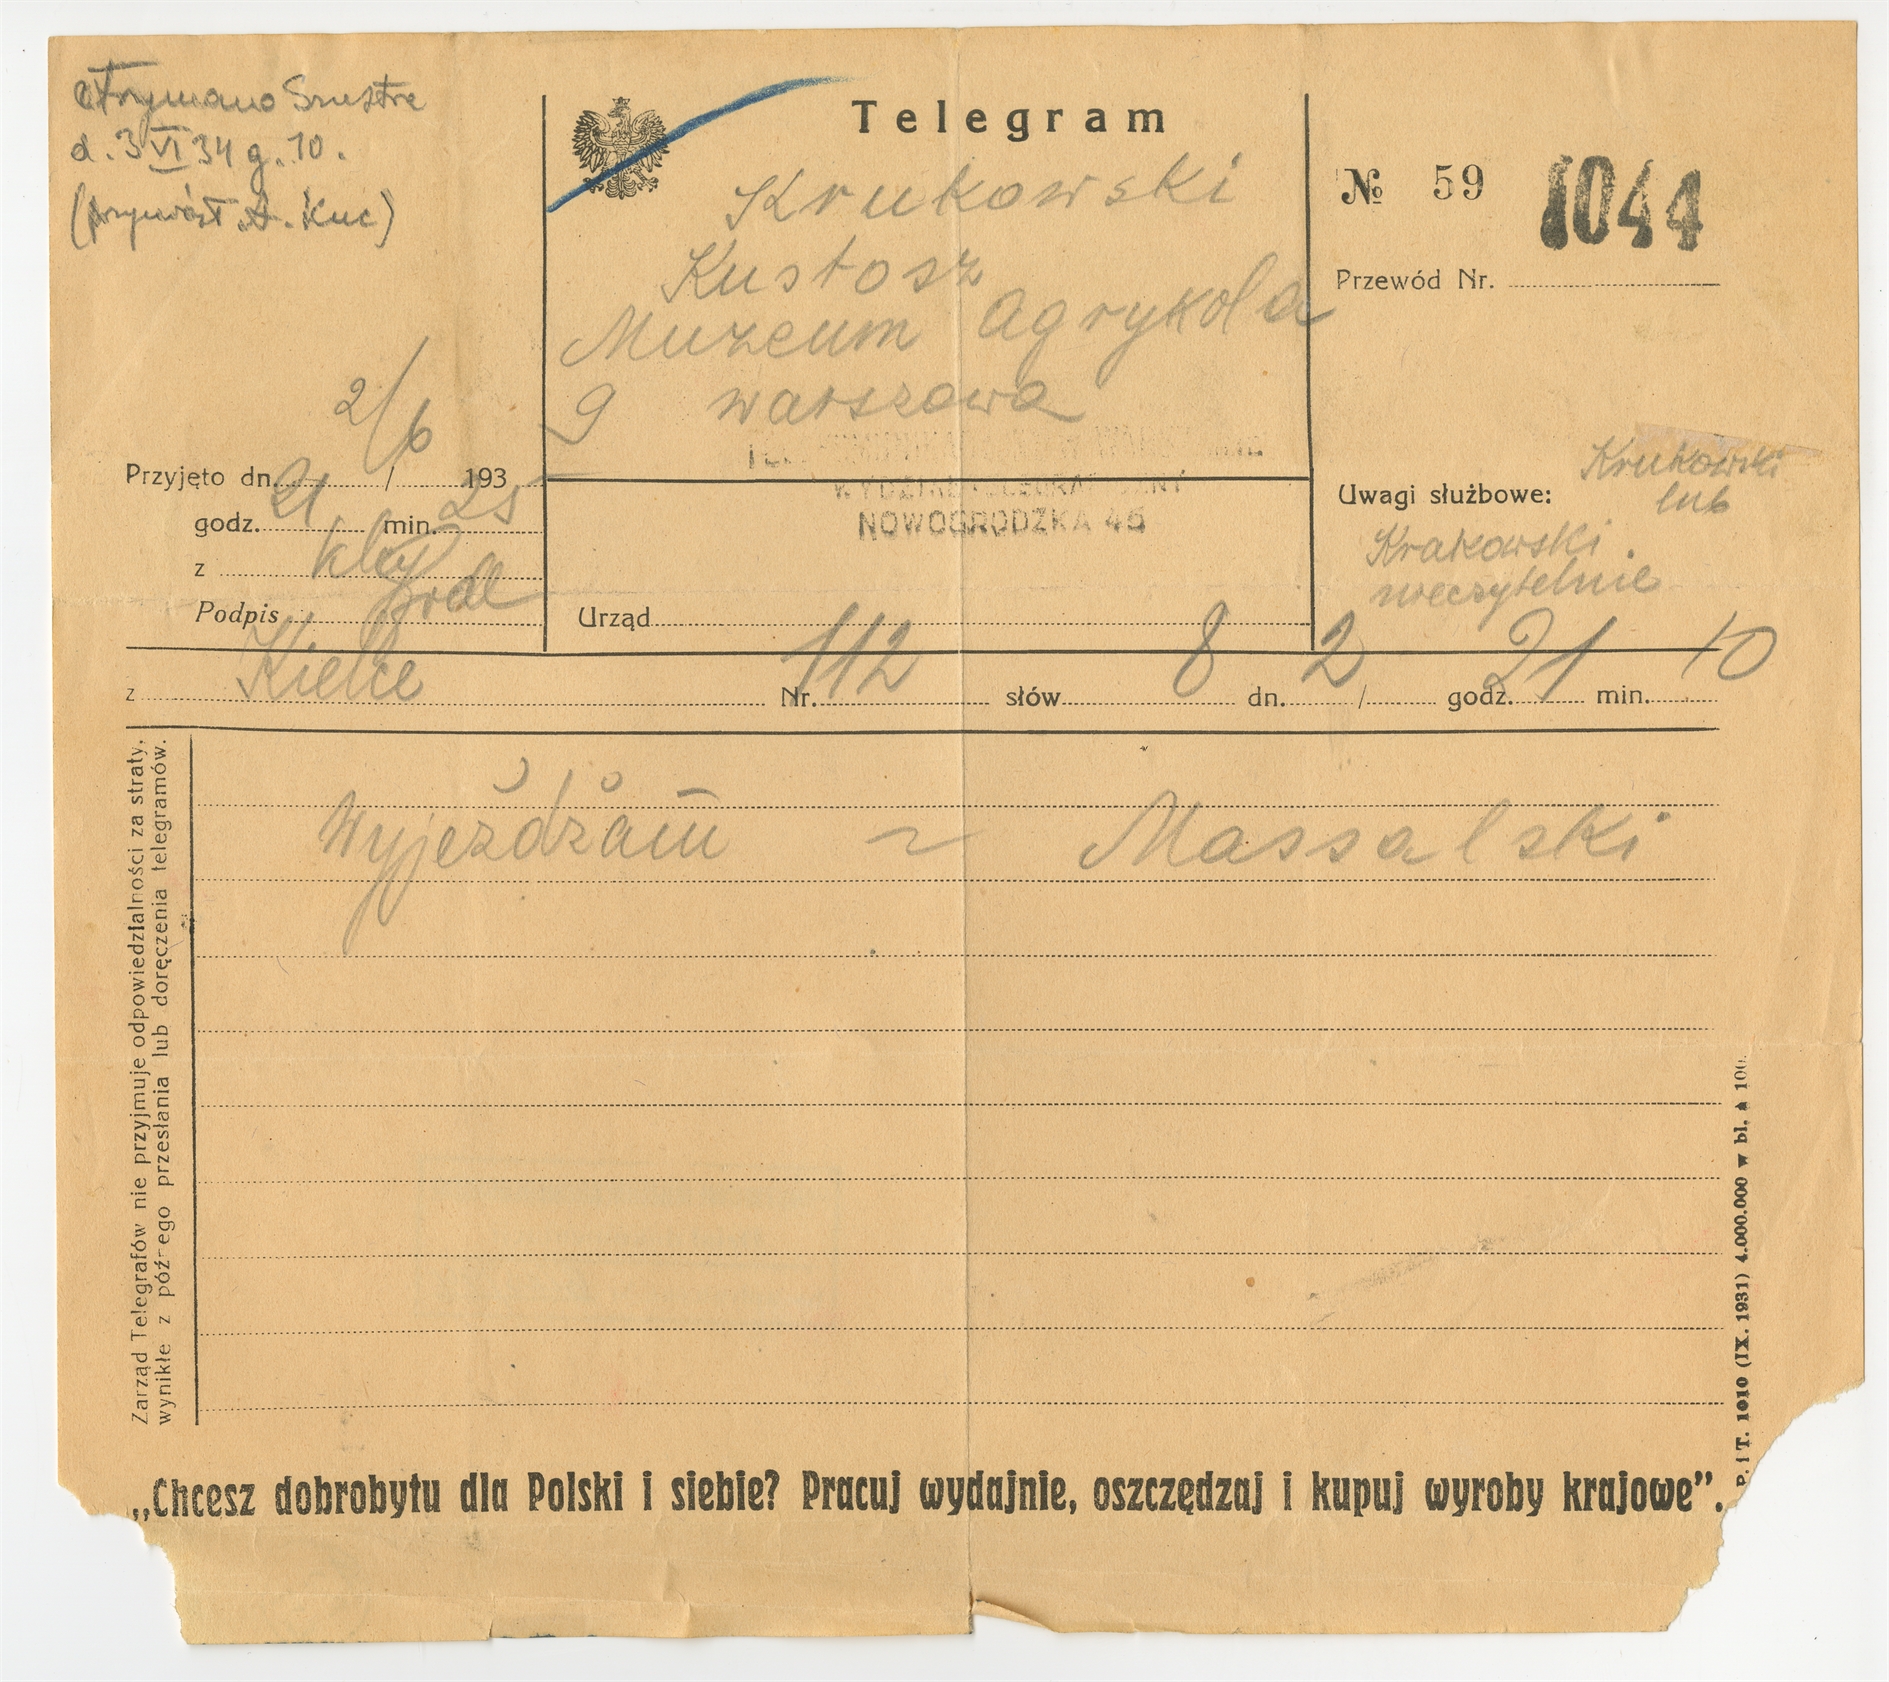 otrzymano Szustra
d. 3 VI 34 g. 10.
(przywiózł A. Kuc)
Telegram
Krukowski
Kustosz
Muzeum Agrykola
9 warszawa
№ 59 1044
Przewód Nr.
2/6
Przyjęto dn. / 193
godz. 21 min. 25
z
Podpis
WYDZIAŁ TELEGRAFICZNY
NOWOGRODZKA 45
Urząd
Uwagi służbowe: Krukowski
lub
Krakowski.
nieczytelnie
z Kielce Nr. 112 słów 8 dn. 2 / godz. 21 min. 10
Wyjeżdżam ~ Massalski
Zarząd Telegrafów nie przyjmuje odpowiedzialności za straty,
wynikłe z późnego przesłania lub doręczenia telegramów.
P. i T. 1010 (IX. 1931) 4.000.000 w bl. à 100.
„Chcesz dobrobytu dla Polski i siebie? Pracuj wydajnie, oszczędzaj i kupuj wyroby krajowe”.